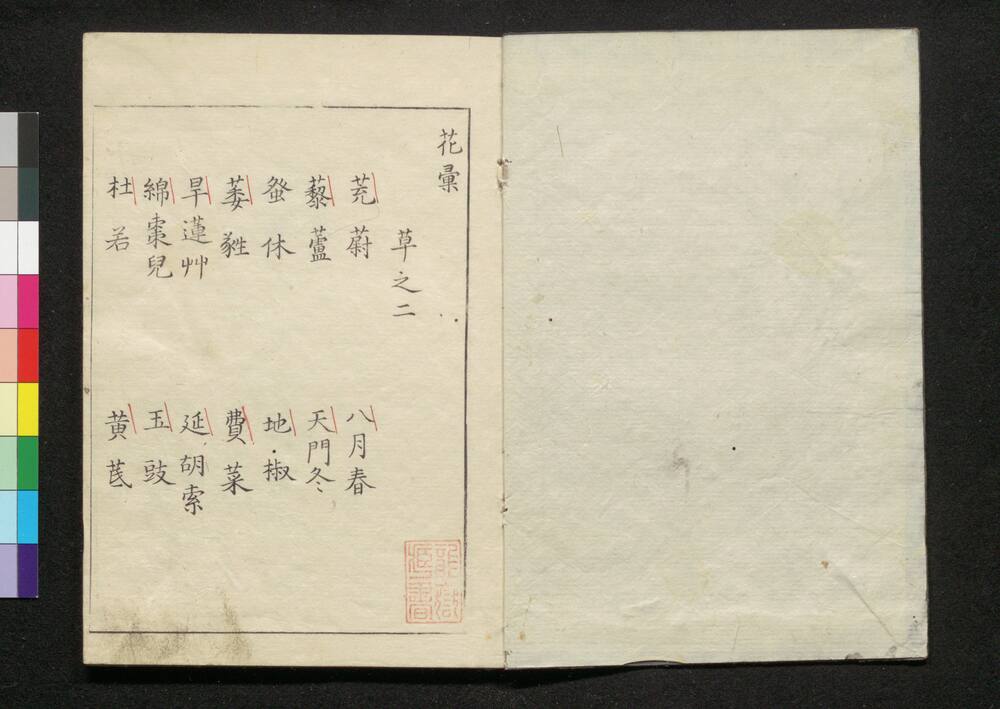 花彙
草之二
茺蔚
八月春
藜蘆
天門冬
蚤休
地椒
萎蕤
費菜
旱蓮艸
延胡索
綿棗兒
玉豉
杜若
黄芪